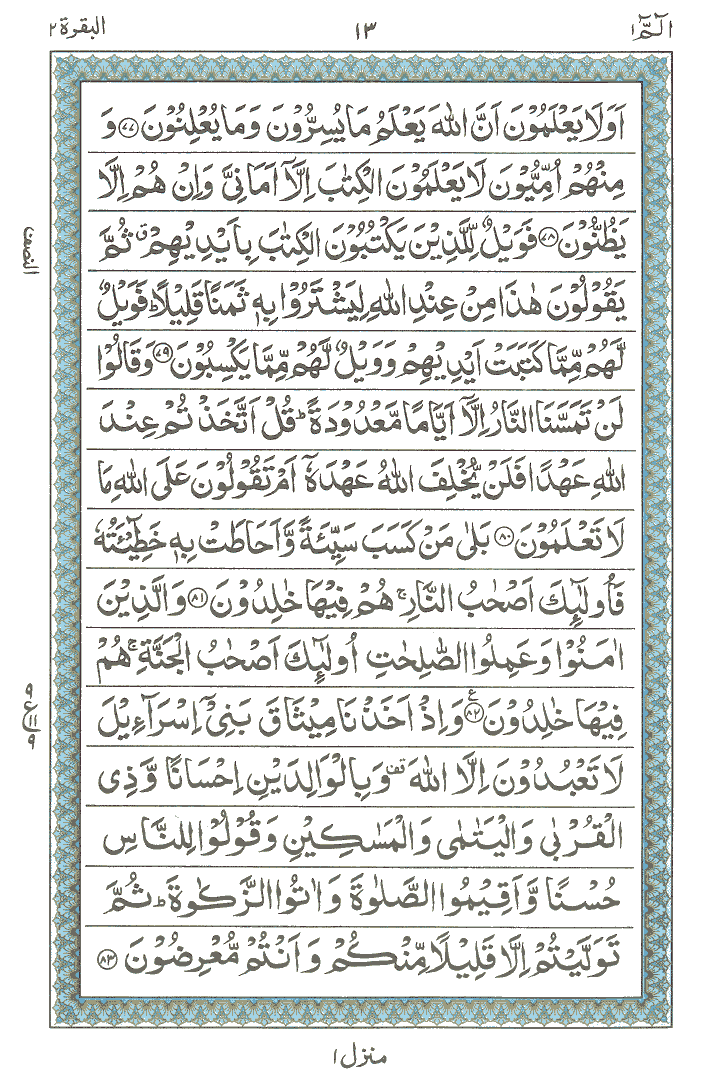 الٓمّٓ ١ ١٣ البقرة ٢
اَوَلَا يَعْلَمُوْنَ اَنَّ اللّٰهَ يَعْلَمُ مَا يُسِرُّوْنَ وَمَا يُعْلِنُوْنَ ﴿٧٧﴾ وَ
مِنْهُمْ اُمِّيُّوْنَ لَا يَعْلَمُوْنَ الْكِتٰبَ اِلَّآ اَمَانِيَّ وَاِنْ هُمْ اِلَّا
يَظُنُّوْنَ ﴿٧٨﴾ فَوَيْلٌ لِّلَّذِيْنَ يَكْتُبُوْنَ الْكِتٰبَ بِاَيْدِيْهِمْ ۗ ثُمَّ
يَقُوْلُوْنَ هٰذَا مِنْ عِنْدِ اللّٰهِ لِيَشْتَرُوْا بِهٖ ثَمَنًا قَلِيْلًا ؕ فَوَيْلٌ
لَّهُمْ مِّمَّا كَتَبَتْ اَيْدِيْهِمْ وَوَيْلٌ لَّهُمْ مِّمَّا يَكْسِبُوْنَ ﴿٧٩﴾ وَقَالُوْا
لَنْ تَمَسَّنَا النَّارُ اِلَّآ اَيَّامًا مَّعْدُوْدَةً ؕ قُلْ اَتَّخَذْتُمْ عِنْدَ
اللّٰهِ عَهْدًا فَلَنْ يُّخْلِفَ اللّٰهُ عَهْدَهٗٓ اَمْ تَقُوْلُوْنَ عَلَى اللّٰهِ مَا
لَا تَعْلَمُوْنَ ﴿٨٠﴾ بَلٰى مَنْ كَسَبَ سَيِّئَةً وَّاَحَاطَتْ بِهٖ خَطِيْٓئَتُهٗ
فَاُولٰٓئِكَ اَصْحٰبُ النَّارِ ۚ هُمْ فِيْهَا خٰلِدُوْنَ ﴿٨١﴾ وَالَّذِيْنَ
اٰمَنُوْا وَعَمِلُوا الصّٰلِحٰتِ اُولٰٓئِكَ اَصْحٰبُ الْجَنَّةِ ۚ هُمْ
فِيْهَا خٰلِدُوْنَ ﴿٨٢﴾ ع وَاِذْ اَخَذْنَا مِيْثَاقَ بَنِيْٓ اِسْرَآءِيْلَ
لَا تَعْبُدُوْنَ اِلَّا اللّٰهَ قف وَبِالْوَالِدَيْنِ اِحْسَانًا وَّذِي
الْقُرْبٰى وَالْيَتٰمٰى وَالْمَسٰكِيْنِ وَقُوْلُوْا لِلنَّاسِ
حُسْنًا وَّاَقِيْمُوا الصَّلٰوةَ وَاٰتُوا الزَّكٰوةَ ؕ ثُمَّ
تَوَلَّيْتُمْ اِلَّا قَلِيْلًا مِّنْكُمْ وَاَنْتُمْ مُّعْرِضُوْنَ ﴿٨٣﴾
النصف
٩ ع ١١ ٩
منزل ١